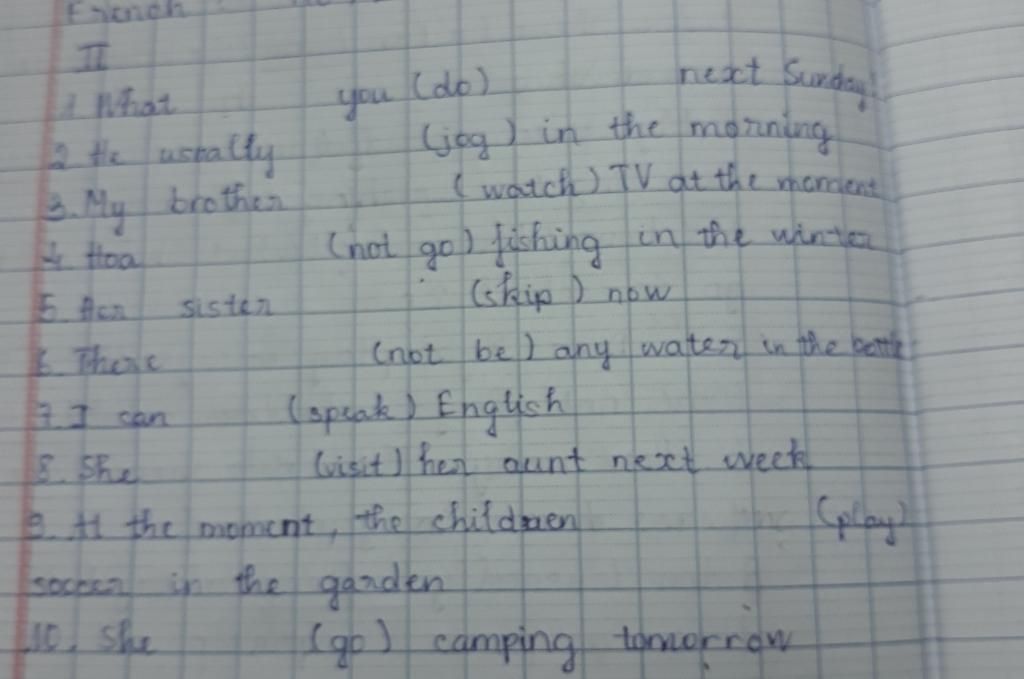 French
II
1. What you (do) next Sunday?
2. He usually (jog) in the morning
3. My brother (watch) TV at the moment
4. Hoa (not go) fishing in the winter
5. Her sister (skip) now
6. There (not be) any water in the bottle
7. I can (speak) English
8. She (visit) her aunt next week
9. At the moment, the children (play)
soccer in the garden
10. She (go) camping tomorrow